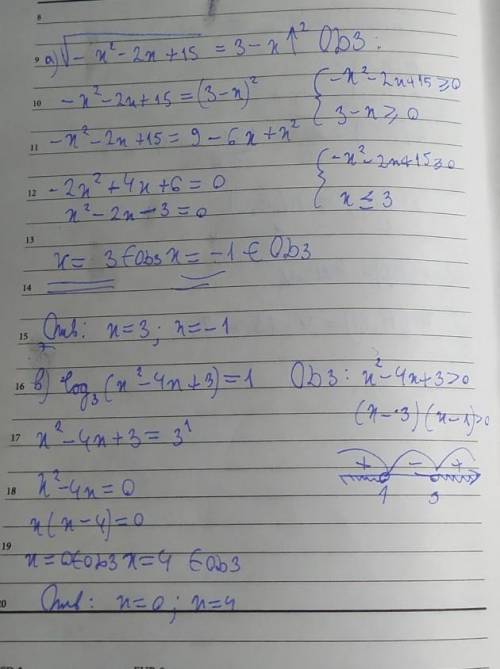 8
9 а) √(-x²-2x+15) = 3-x ↑² ОВЗ:
10 -x²-2x+15=(3-x)² { -x²-2x+15≥0
3-x≥0
11 -x²-2x+15= 9-6x+x²
12 -2x²+4x+6=0 { -x²-2x+15≥0
x²-2x-3=0 x≤3
13 x= 3 ∈ ОВЗ x= -1 ∈ ОВЗ
14
15 Отв: x=3; x=-1
16 в) log₃(x²-4x+3)=1 ОВЗ: x²-4x+3>0
(x-3)(x-1)>0
17 x²-4x+3=3¹
+ - +
1 3
18 x²-4x=0
x(x-4)=0
19
x=0∈ОВЗ x=4 ∈ОВЗ
20 Отв: x=0; x=4